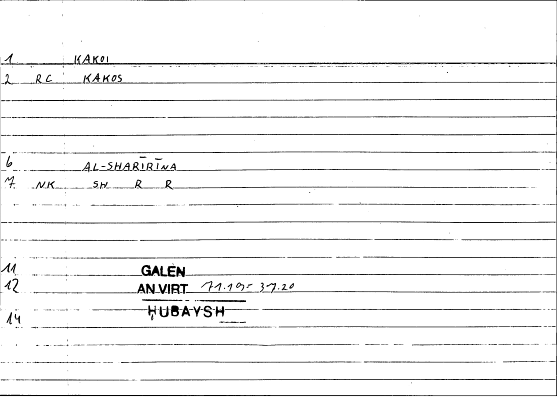 1 KAKOI
2 RC KAKOS
6 AL-SHARĪRĪNA
7 NK SH R R
11 GALEN
12 AN VIRT 71.19 = 37.20
14 ḤUBAYSH